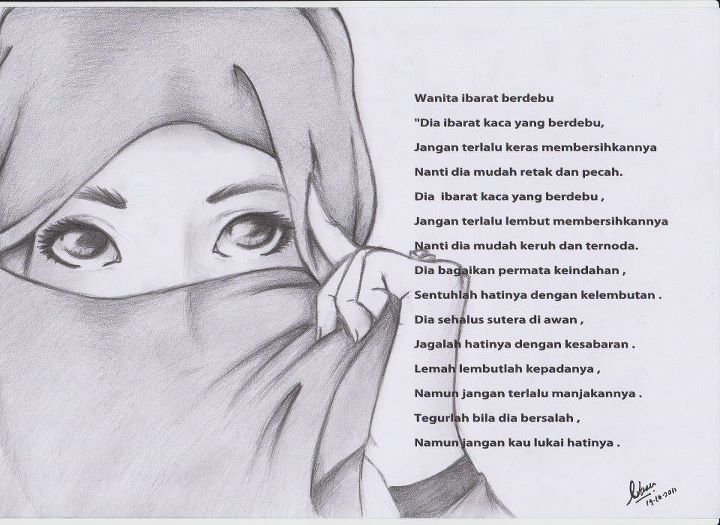 Wanita ibarat berdebu
"Dia ibarat kaca yang berdebu,
Jangan terlalu keras membersihkannya
Nanti dia mudah retak dan pecah.
Dia ibarat kaca yang berdebu ,
Jangan terlalu lembut membersihkannya
Nanti dia mudah keruh dan ternoda.
Dia bagaikan permata keindahan ,
Sentuhlah hatinya dengan kelembutan .
Dia sehalus sutera di awan ,
Jagalah hatinya dengan kesabaran .
Lemah lembutlah kepadanya ,
Namun jangan terlalu manjakannya .
Tegurlah bila dia bersalah ,
Namun jangan kau lukai hatinya .
19.10.2011